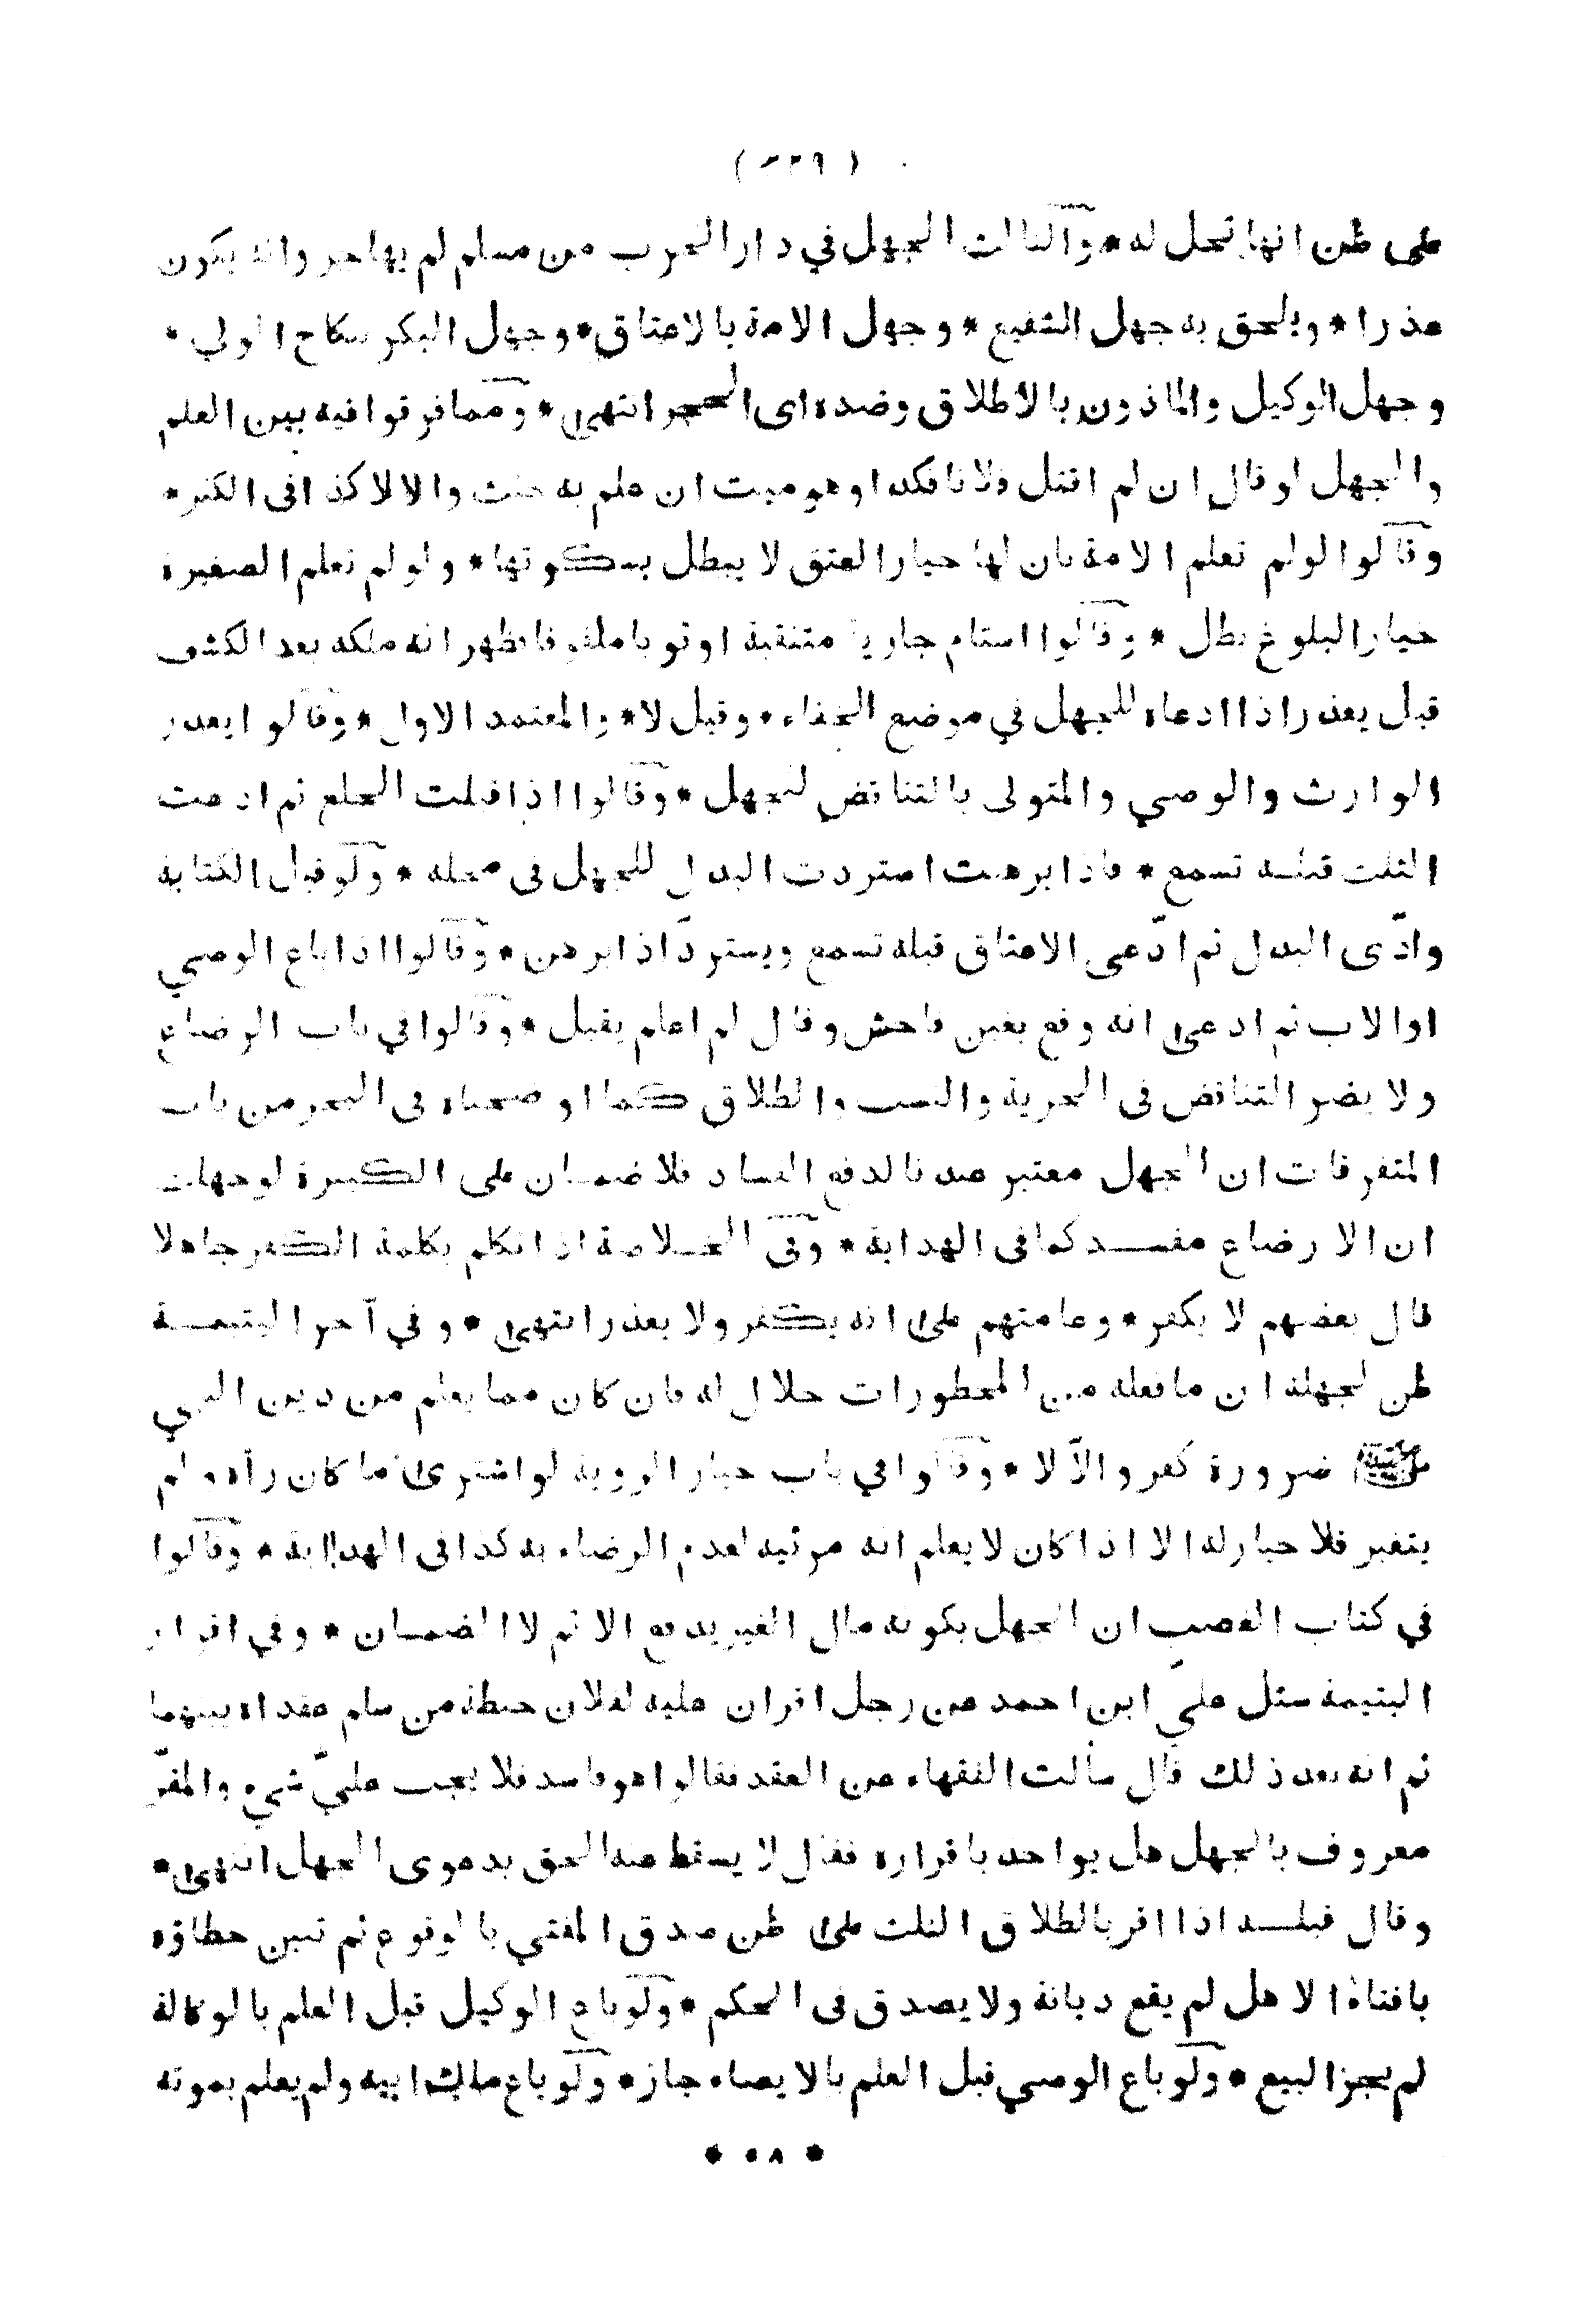 على ظن انها تحل له * والثالث الجهل في دار الحرب من مسلم لم يهاجر وانه يكون
عذرا * ويلحق به جهل الشفيع * وجهل الامة بالاعتاق * وجهل البكر بنكاح الولي *
وجهل الوكيل والماذون بالاطلاق وضده اى الحجر انتهى * ومما فرقوا فيه بين العلم
والجهل لو قال ان لم اقتل فلانا فكذا وهو ميت ان علم به حنث والا لا كذا فى الكنز *
وقالوا لو لم تعلم الامة بان لها خيار العتق لا يبطل بسكوتها * ولو لم تعلم الصغيرة
خيار البلوغ بطل * وقالوا استام جارية متنقبة او ثوبا ملفوفا فظهر انه ملكه بعد الكشف
قيل يعذر اذا ادعاه للجهل في موضع الخفاء * وقيل لا * والمعتمد الاول * وقالوا يعذر
الوارث والوصي والمتولى بالتناقض للجهل * وقالوا اذا قبلت الخلع ثم ادعت
الثلث قبله تسمع * فاذا برهنت استردت البدل للجهل فى محله * ولو قبل الكتابة
وادّى البدل ثم ادّعى الاعتاق قبله تسمع ويستردّ اذا برهن * وقالوا اذا باع الوصي
او الاب ثم ادعى انه وقع بغبن فاحش وقال لم اعلم يقبل * وقالوا في باب الرضاع
ولا يضر التناقض فى الحرية والنسب والطلاق كما اوضحناه فى البحر من باب
المتفرقات ان الجهل معتبر عندنا لدفع الفساد فلا ضمان على الكبيرة لو جهلت
ان الارضاع مفسد كما فى الهداية * وفى الخلاصة اذا تكلم بكلمة الكفر جاهلا
قال بعضهم لا يكفر * وعامتهم على انه يكفر ولا يعذر انتهى * وفي آخر اليتيمة
ظن لجهله ان ما فعله من المحظورات حلال له فان كان مما يعلم من دين النبي
صلى الله عليه وسلم ضرورة كفر والاّ لا * وقالوا في باب خيار الروية لو اشترى ما كان رآه ولم
يتغير فلا خيار له الا اذا كان لا يعلم انه مرئيه لعدم الرضاء به كذا فى الهداية * وقالوا
في كتاب الغصب ان الجهل بكونه مال الغير يدفع الاثم لا الضمان * وفي اقرار
اليتيمة سئل علي ابن احمد عن رجل اقر ان عليه لفلان حنطة من سلم عقداه بينهما
ثم انه بعد ذلك قال سألت الفقهاء عن العقد فقالوا هو فاسد فلا يجب عليّ شيء والمقرّ
معروف بالجهل هل يواخذ باقراره فقال لا يسقط عنه الحق بدعوى الجهل انتهى *
وقال قبله اذا اقر بالطلاق الثلث على ظن صدق المفتي بالوقوع ثم تبين خطاؤه
بافتاء الاهل لم يقع ديانة ولا يصدق فى الحكم * ولو باع الوكيل قبل العلم بالوكالة
لم يجز البيع * ولو باع الوصي قبل العلم بالايصاء جاز * ولو باع ملك ابيه ولم يعلم بموته
* ٥٨ *